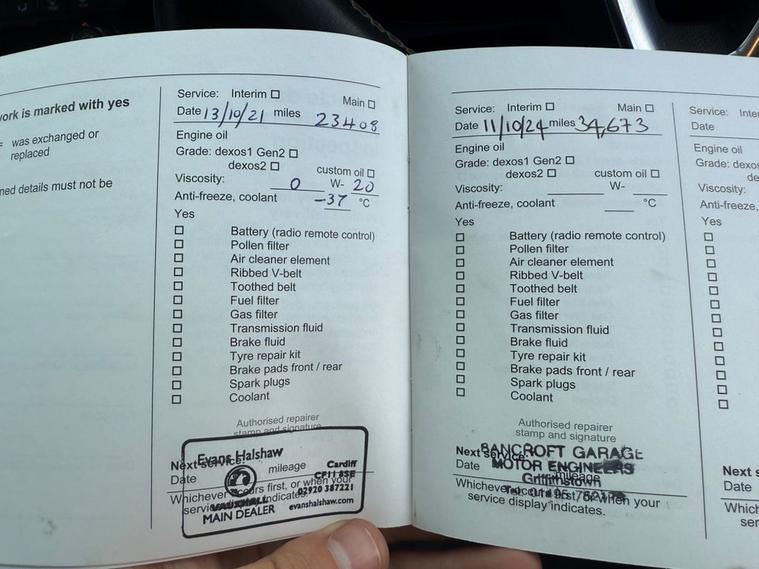 ork is marked with yes
= was exchanged or
replaced
ned details must not be
Service: Interim ☐ Main ☐
Date 13/10/21 miles 23408
Engine oil
Grade: dexos1 Gen2 ☐
dexos2 ☐ custom oil ☐
Viscosity: 0 W- 20
Anti-freeze, coolant -37 °C
Yes
☐ Battery (radio remote control)
☐ Pollen filter
☐ Air cleaner element
☐ Ribbed V-belt
☐ Toothed belt
☐ Fuel filter
☐ Gas filter
☐ Transmission fluid
☐ Brake fluid
☐ Tyre repair kit
☐ Brake pads front / rear
☐ Spark plugs
☐ Coolant
Authorised repairer
stamp and signature
Next service:
Date mileage
Whichever occurs first, or when your
service indicates.
Evans Halshaw
VAUXHALL
MAIN DEALER
Cardiff
CF11 8SE
02920 387221
evanshalshaw.com
Service: Interim ☐ Main ☐
Date 11/10/24 miles 34,673
Engine oil
Grade: dexos1 Gen2 ☐
dexos2 ☐ custom oil ☐
Viscosity: W-
Anti-freeze, coolant °C
Yes
☐ Battery (radio remote control)
☐ Pollen filter
☐ Air cleaner element
☐ Ribbed V-belt
☐ Toothed belt
☐ Fuel filter
☐ Gas filter
☐ Transmission fluid
☐ Brake fluid
☐ Tyre repair kit
☐ Brake pads front / rear
☐ Spark plugs
☐ Coolant
Authorised repairer
stamp and signature
Next service:
Date mileage
Whichever occurs first, or when your
service display indicates.
BANCROFT GARAGE
MOTOR ENGINEERS
Griffithstown
Service: Inter
Date
Engine oil
Grade: dexos
de
Viscosity:
Anti-freeze,
Yes
☐
☐
☐
☐
☐
☐
☐
☐
☐
☐
☐
☐
☐
Next s
Date
Which
ser